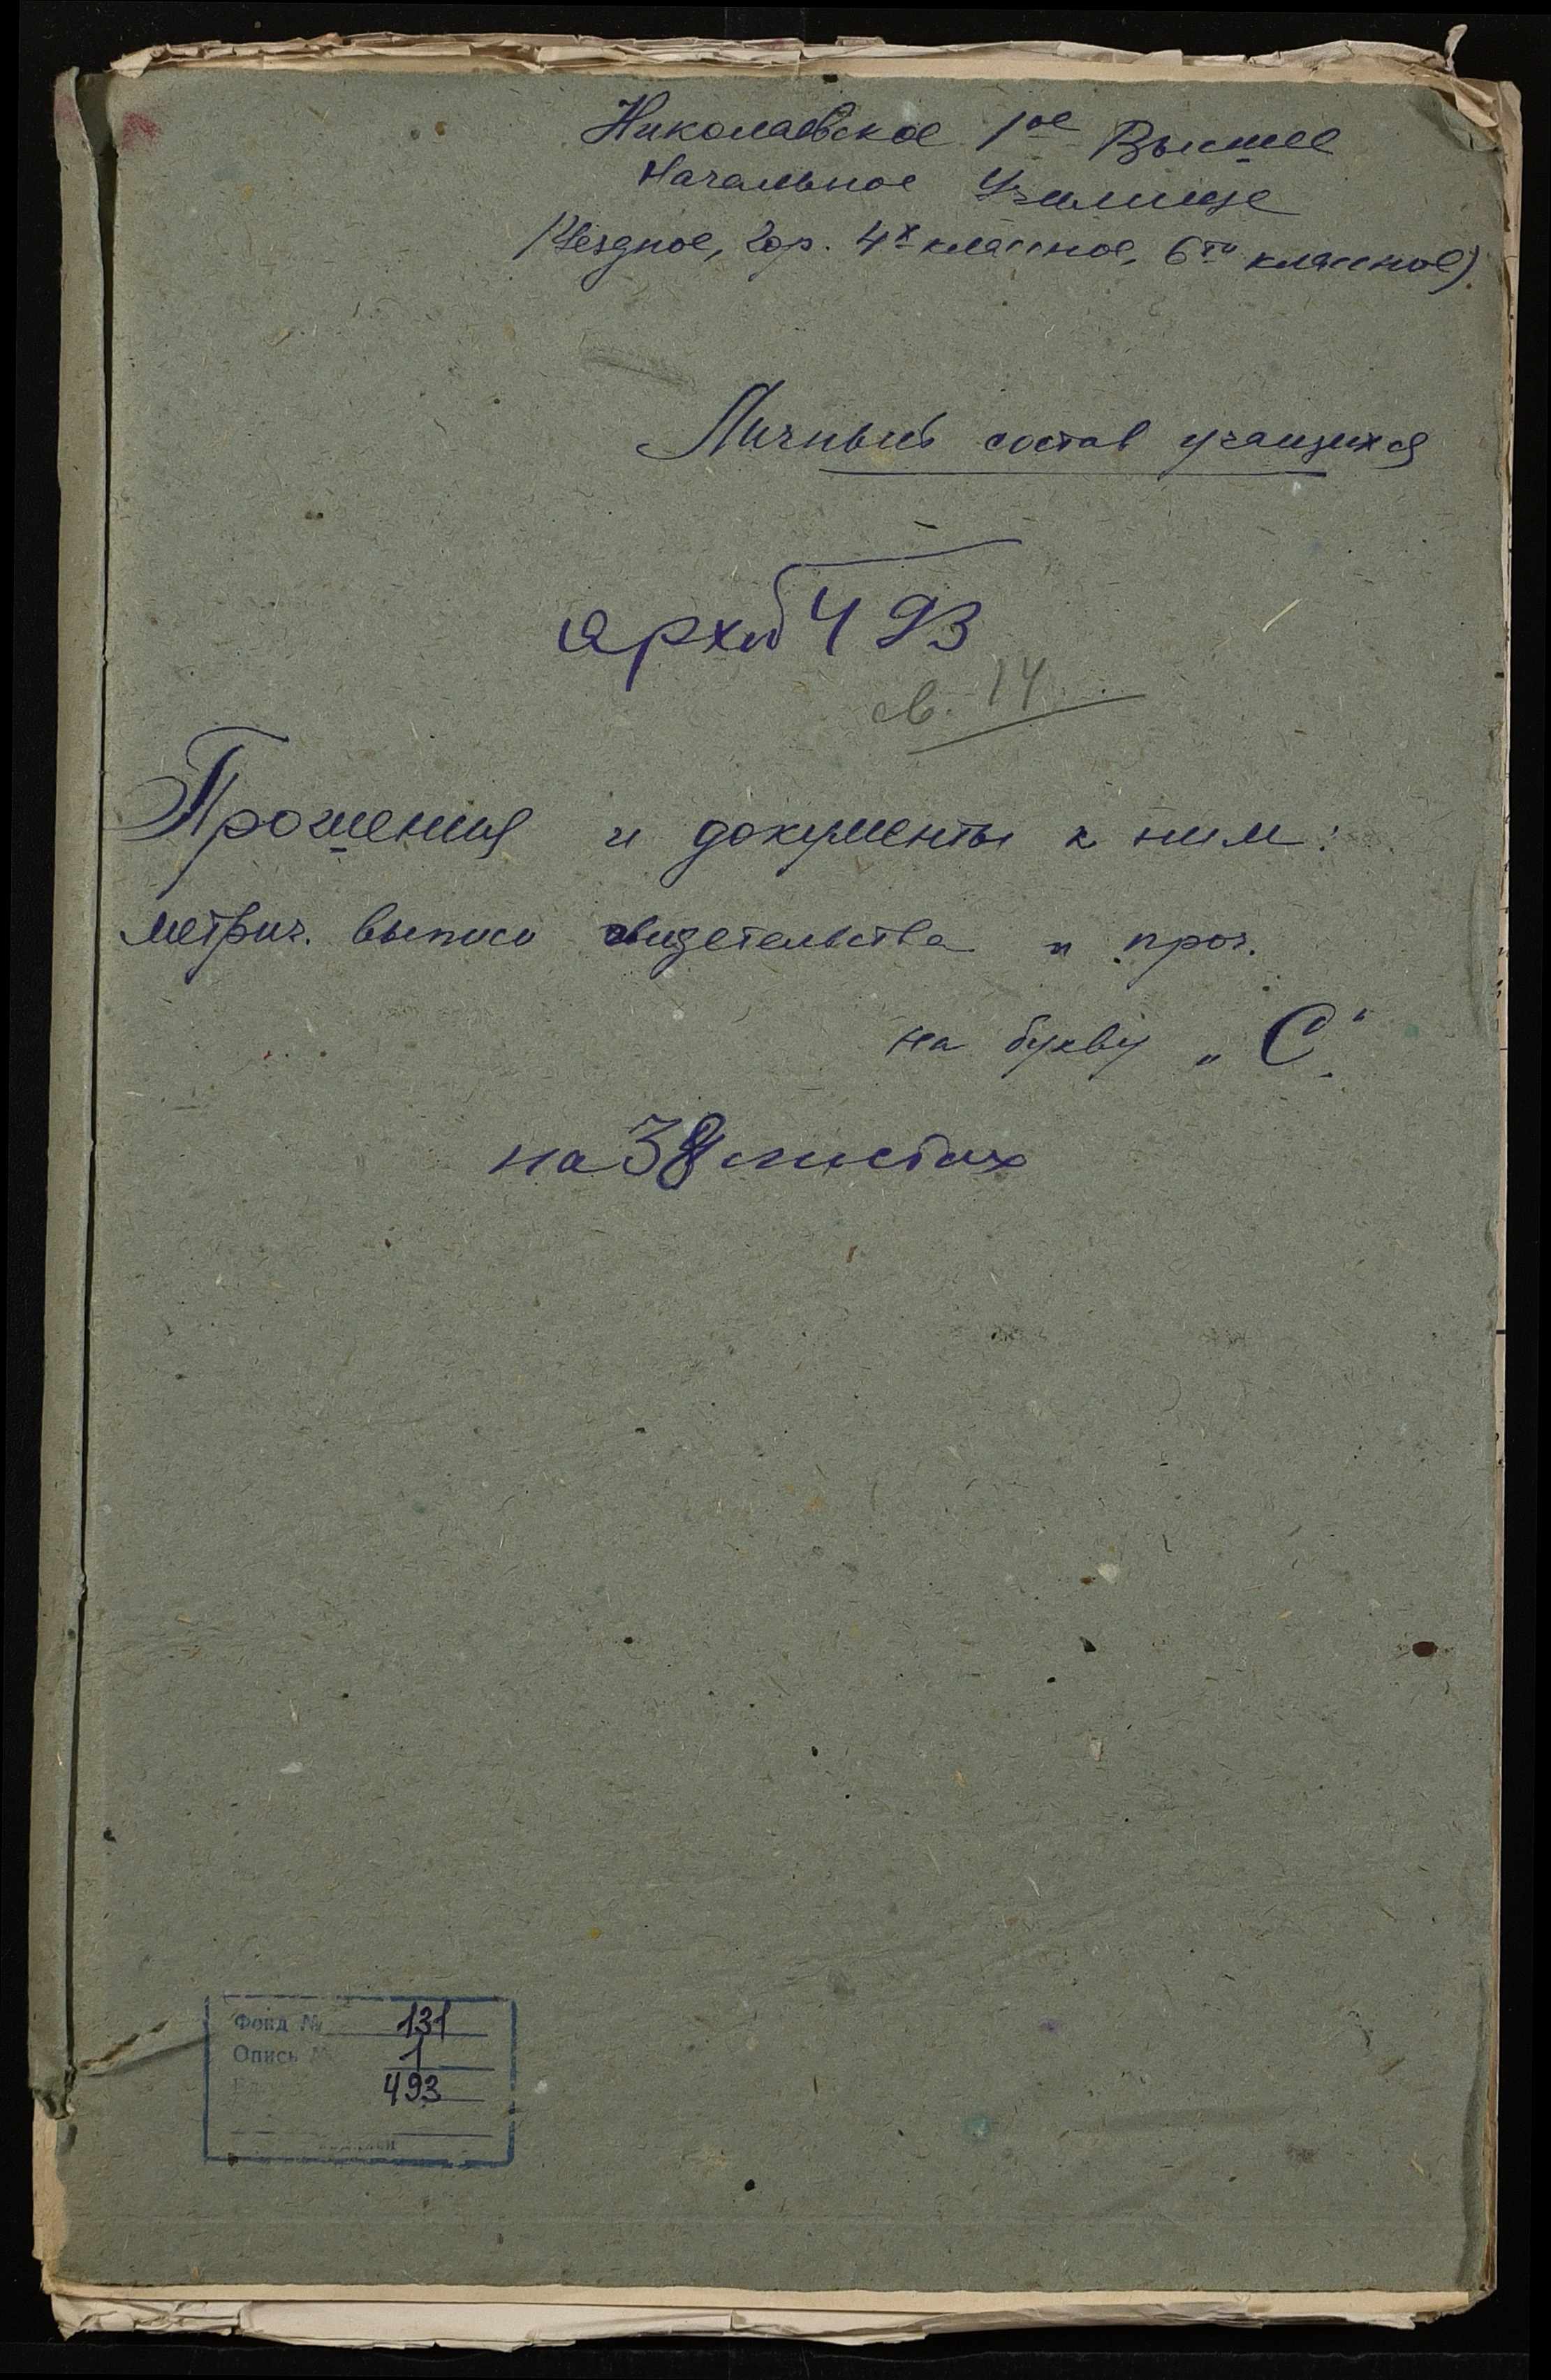 Николаевское 1ое Высшее
Начальное Училище
(Уездное, Гор. 4х классное, 6ти классное)
Личный состав учащихся
арх № 493
св. 14
Прошения и документы к ним:
метрич. выписи свидетельства и проч.
на букву „С“
на 38 листах
Фонд № 131
Опись № 1
493